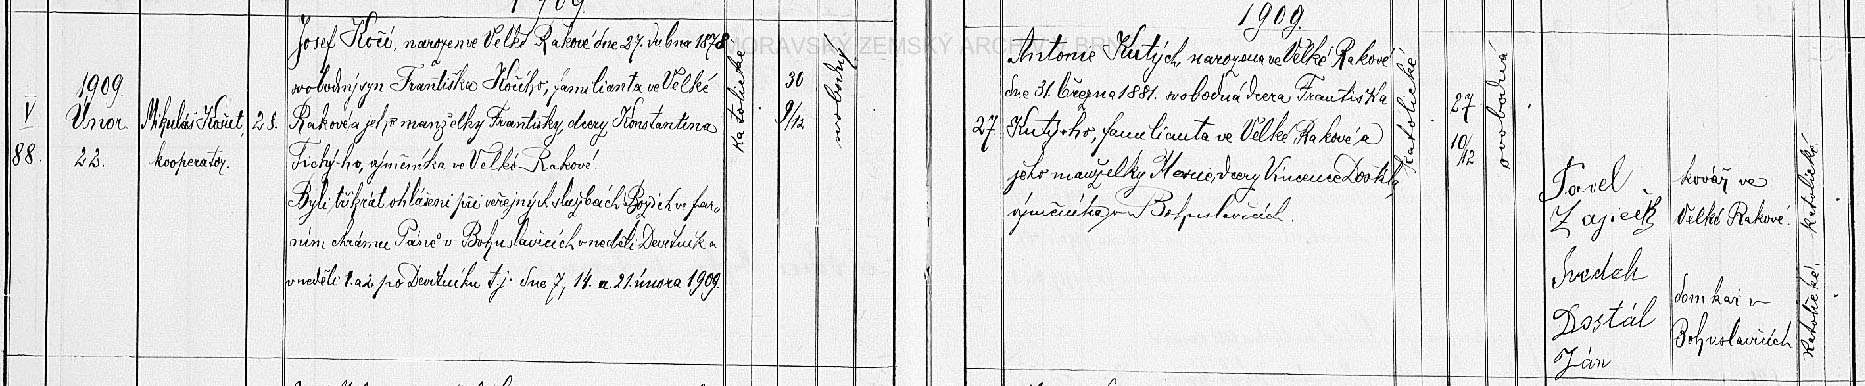 1909.
MORAVSKÝ ZEMSKÝ ARCHIV BRNO
V
88.
1909
Únor
22.
Mikuláš
kooperator.
28.
Josef Kočí, narozen ve Velké Rakové dne 27. dubna 1878
svobodný syn Františka Kočího, familianta ve Velké
Rakové a jeho manželky Františky, dcery Konstantina
Tichý-ho, výměnníka ve Velké-Rakové.
Byli třikrát ohlášeni při veřejných službách Božích ve far-
ním chrámu Páně v Bohuslavicích v neděli Devítník a
v neděli 1. a 2. po Devítníku t.j. dne 7, 14. a 21. února 1909.
katolické
30
9/12
svobodný
1909.
27
Antonie Kutých, narozena ve Velké Rakové
dne 31. března 1881. svobodná dcera Františka
Kutý-ho, familianta ve Velké Rakové a
jeho manželky dcery Vincence Dostála,
výměnníka v Bohuslavicích.
katolické
27
10/12
svobodná
Pavel
Zajíček
Svedek
Dostál
Ján
kovář ve
Velké Rakové.
domkař v
Bohuslavicích
katolické
katolické